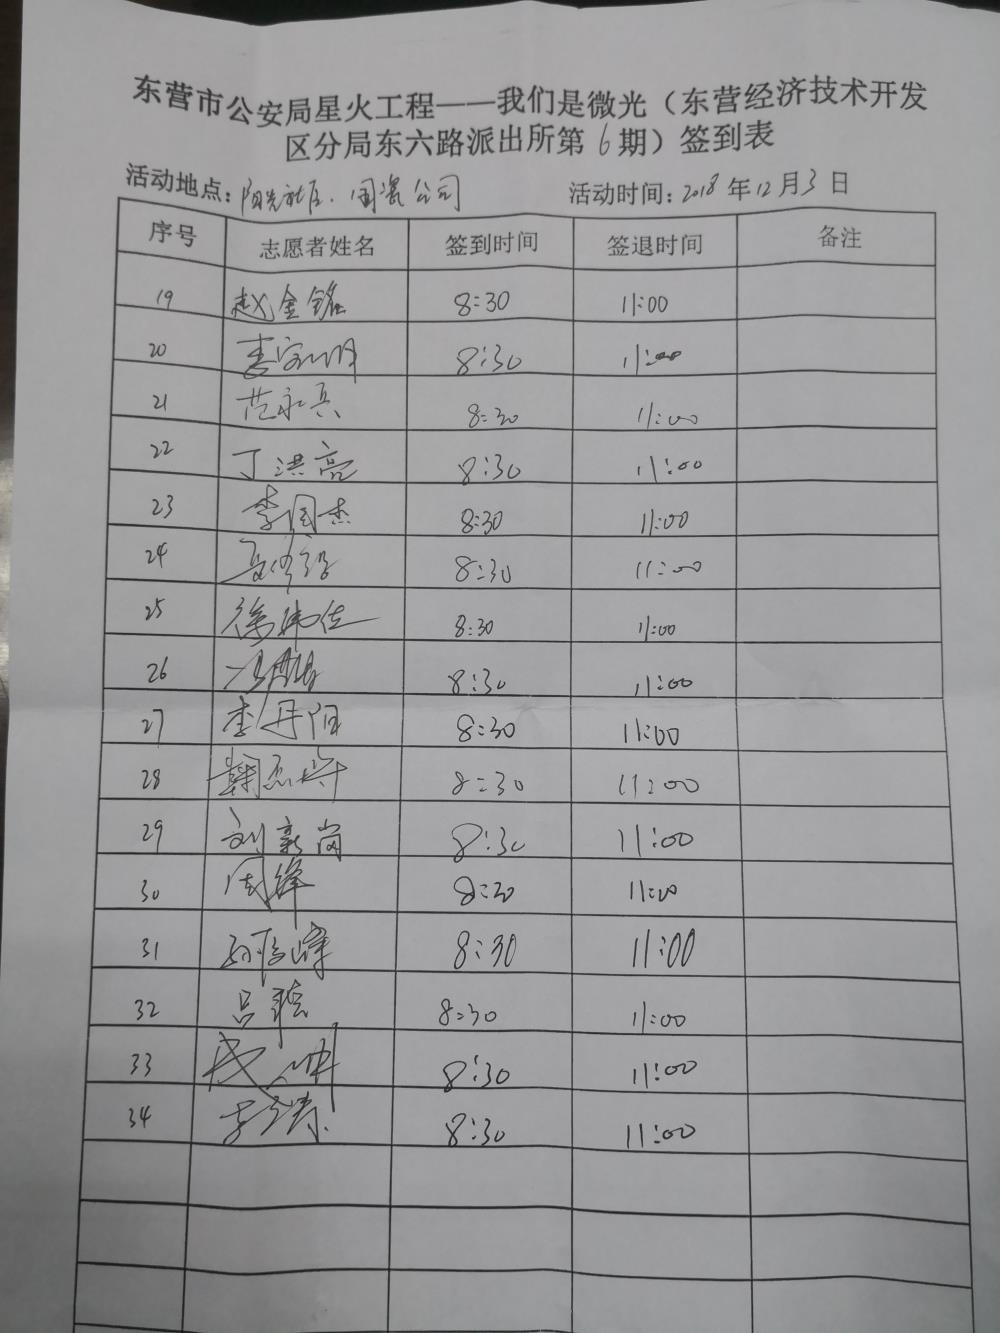 东营市公安局星火工程——我们是微光（东营经济技术开发
区分局东六路派出所第6期）签到表
活动地点：阳光社区、国瓷公司 活动时间：2018年12月3日
序号 志愿者姓名 签到时间 签退时间 备注
19 赵金铭 8:30 11:00
20 李 8:30 11:00
21 范永兵 8:30 11:00
22 丁洪亮 8:30 11:00
23 李国杰 8:30 11:00
24 8:30 11:00
25 徐 8:30 11:00
26 冯 8:30 11:00
27 李丹阳 8:30 11:00
28 8:30 11:00
29 刘新岗 8:30 11:00
30 周锋 8:30 11:00
31 孙 峰 8:30 11:00
32 吕 8:30 11:00
33 8:30 11:00
34 李 8:30 11:00